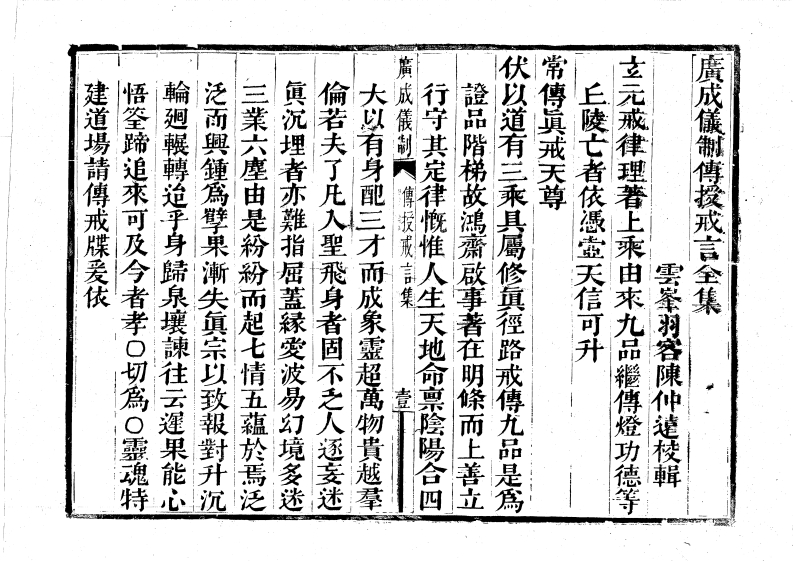 廣成儀制傳授戒言全集
雲峯羽客陳仲遠校輯
玄元戒律理著上乘由來九品繼傳燈功德等
丘陵亡者依憑壼天信可升
常傳眞戒天尊
伏以道有三乘具屬修眞徑路戒傳九品是爲
證品階梯故鴻齋啟事著在明條而上善立
行守其定律慨惟人生天地命禀陰陽合四
廣成儀制 傳授戒言集 壹
大以有身配三才而成象靈超萬物貴越羣
倫若夫了凡入聖飛身者固不乏人逐妄迷
眞沉埋者亦難指屈蓋緣愛波易幻境多迷
三業六塵由是紛紛而起七情五蘊於焉泛
泛而興鍾爲孽果漸失眞宗以致報對升沉
輪廻輾轉迨乎身歸泉壤諫往云遲果能心
悟筌蹄追來可及今者孝○切爲○靈魂特
建道場請傳戒牒爰依